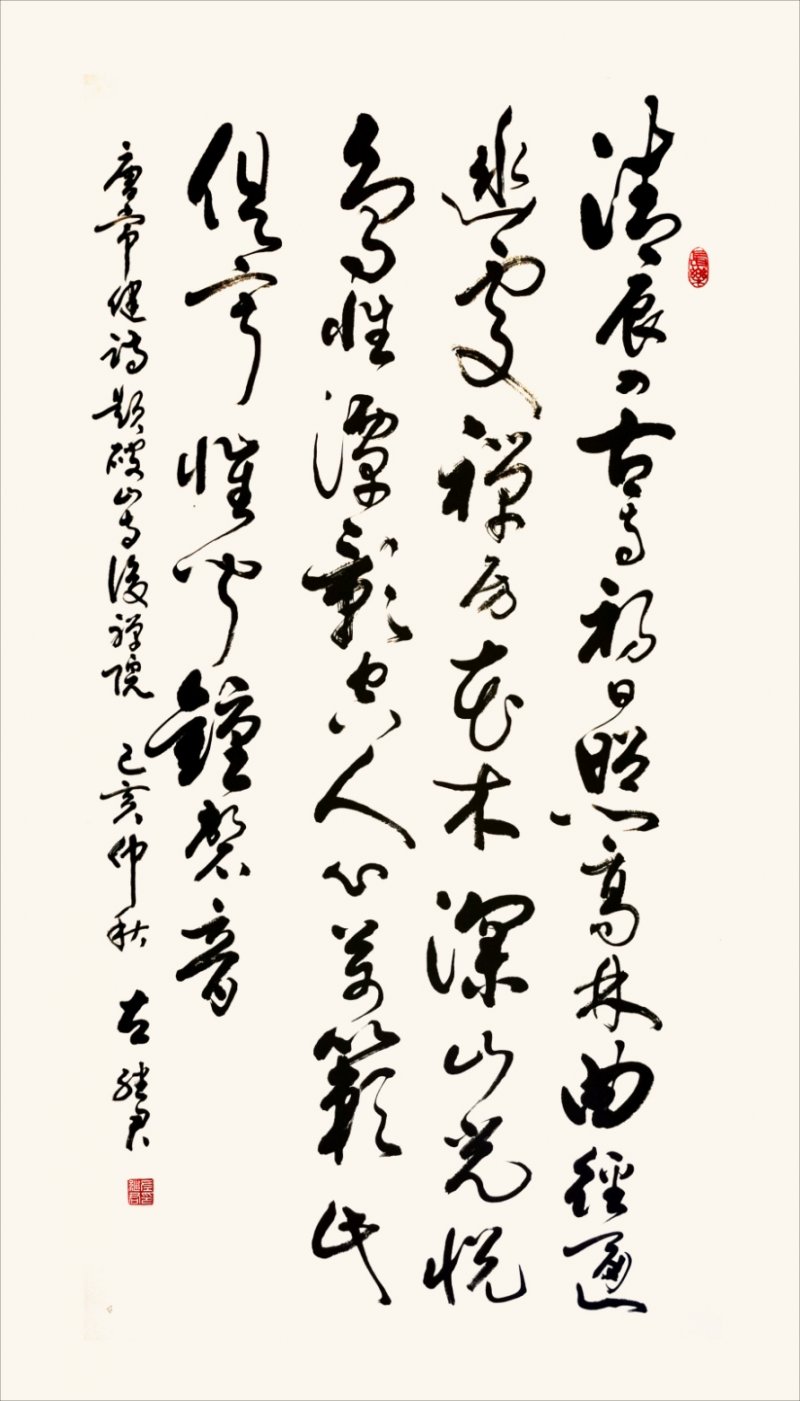 清晨入古寺初日照高林曲徑通
幽處禪房花木深山光悦
鳥性潭影空人心萬籟此
俱寂惟聞鐘磬音
唐常健诗題破山寺後禅院 己亥仲秋 左继君